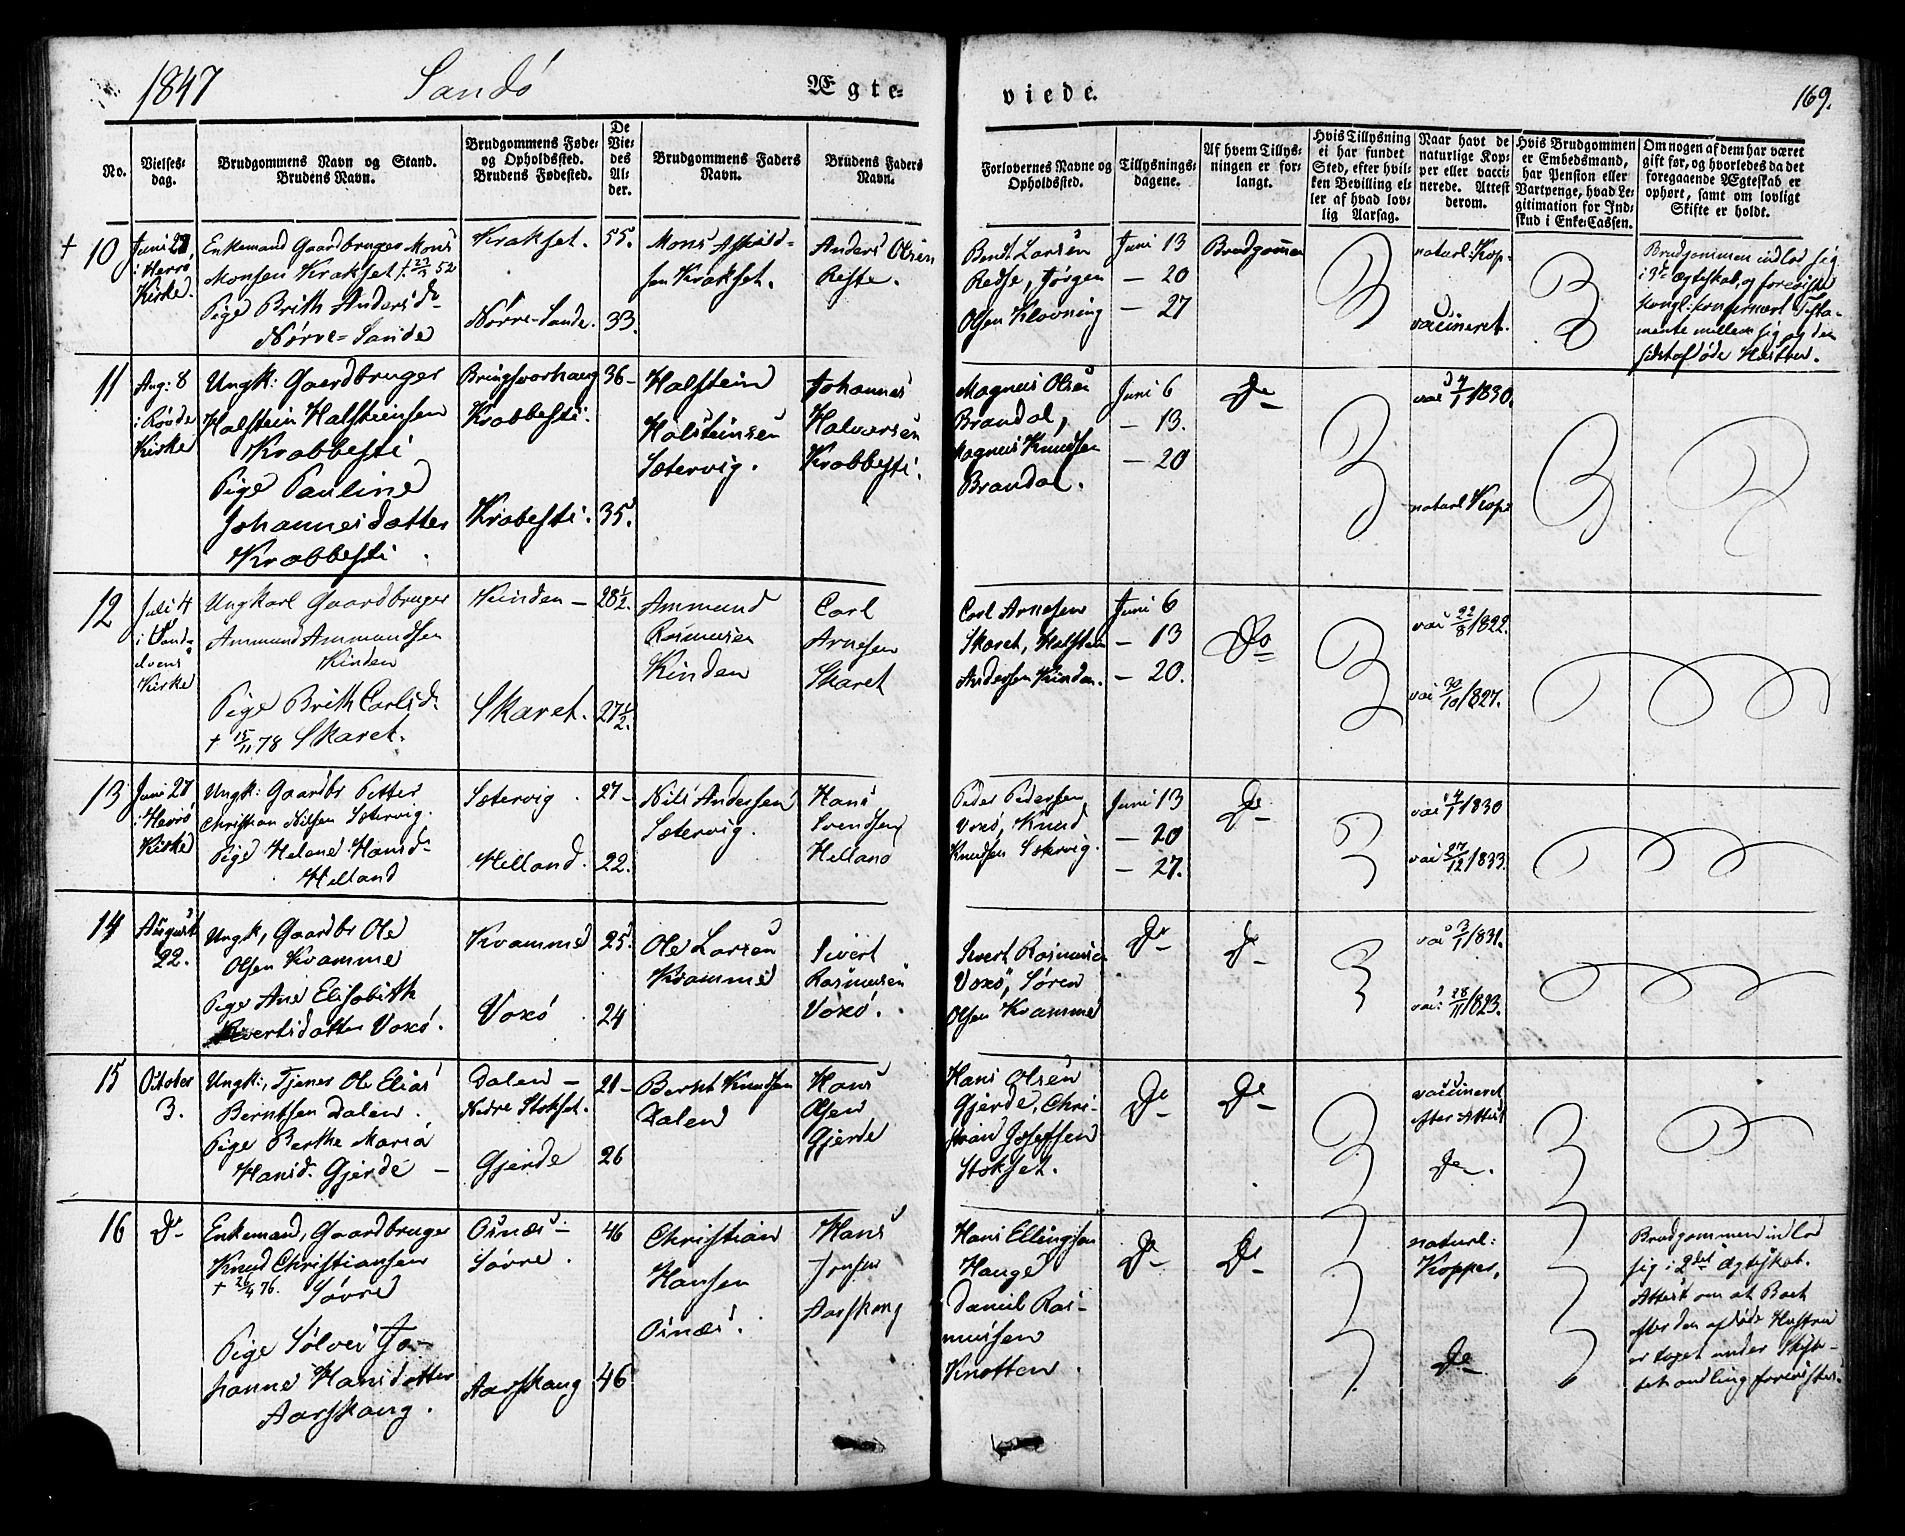 1847 Sandö Ægte-
viede. 169.
No.
Vielses-
dag.
Brudgommens Navn og Stand.
Brudens Navn.
Brudgommens Føde-
og Opholdssted.
Brudens Fødested.
De
Vie-
des
Al-
der.
Brudgommens Faders
Navn.
Brudens Faders
Navn.
Forlovernes Navne og
Opholdssted.
Tillysnings-
dagene.
Af hvem Tillys-
ningen er for-
langt.
Hvis Tillysning
ei har fundet
Sted, efter hvil-
ken Bevilling el-
ler af hvad lov-
lig Aarsag.
Naar havt de
naturlige Kop-
per eller vacci-
nerede. Attest
derom.
Hvis Brudgommen
er Embedsmand,
har Pension eller
Vartpenge, hvad Le-
gitimation for Ind-
skud i Enke-Cassen.
Om nogen af dem har været
gift før, og hvorledes da det
foregaaende Ægteskab er
ophørt, samt om lovligt
Skifte er holdt.
† 10
Juni 27
i Herrö
Kirke.
Enkemand Gaardbruger Mons
Monsen Krakset † 23/3 52
Pige Brith Andersd.
Nörre-Sande
Krakset.
Nörre-Sande.
55.
33.
Mons
sen Krakset.
Anders Olsen
Reste.
Bernt Larsen
Redse, Jörgen
Olsen Klovning
Juni 13
— 20
— 27
Brudgommen
naturl: Kop-
vaccineret.
Brudgommen indlod sig
i 3die Ægteskab, og foreviste
kongl: konfirmert Testa-
mente mellem sig og den
sidst afdöde Hustru.
11
Aug: 8
i Rövde
Kirke
Ungk: Gaardbruger
Halstein Halsteinsen
Krabbesti
Pige Pauline
Johannesdatter
Krabbesti.
Bringsvorhaug
Krabbesti.
Krabesti.
36-
35.
Halstein
Halsteinsen
Sætervig.
Johannes
Halvorsen
Krabbesti.
Magnus Olsen
Brandal,
Magnus Knudsen
Brandal.
Juni 6
— 13.
— 20
Do
vac 4/1 1830.
naturl Kop.
12
Juli 4
i Vand-
elvens
Kirke
Ungkarl Gaardbruger
Ammund Ammundsen
Kinden
Pige Brith Carlsd.
† 15/11 78 Skaret.
Kinden —
Skaret.
28½.
27½.
Ammund
Rasmusen
Kinden
Carl
Arnesen
Skaret
Carl Arnesen
Skaret, Halsten
Andersen Kinden.
Juni 6
— 13
— 20.
Do
vac 22/8 1822.
vac 30/10 1827.
13
Juni 27
i Herrö
Kirke
Ungk: Gaardbr Petter
Christian Nilsen Sætervig.
Pige Helene Hansd-
Helland
Sætervig.
Helland.
27-
22.
Nils Andersen
Sætervig.
Hans
Svendsen
Helland
Peder Pedersen
Voxö, Knud
Knudsen Sætervig.
Juni 13
— 20
— 27.
Do
vac 4/1 1830
vac 27/12 1833.
14
August
22.
Ungk, Gaardbr Ole
Olsen Kvamme
Pige Ane Elisabeth
Sivertsdatter Voxö.
Kvamme
Voxö
25.
24
Ole Larsen
Kvamme
Sivert
Rasmusen
Voxö.
Sivert Rasmusen
Voxö, Sören
Olsen Kvamme
Do
Do
vac 3/1 1831.
vac: 28/11 1823.
15
October
3.
Ungk:, Tjener Ole Elias
Berntsen Dalen.
Pige Berthe Maria
Hansd. Gjerde —
Dalen —
Nedre Stokset.
Gjerde
21-
26
Bernt Knudsen
Dalen
Hans
Olsen
Gjerde
Hans Olsen
Gjerde, Chri-
stian Josefsen
Stokset.
Do
Do
vaccineret
efter Attest
Do.
16
Do
Enkemand, Gaardbruger
Knud Christiansen
† 26/4 76. Sövre
Pige Sölvei Jo-
hanne Hansdatter
Aarskoug.
Osnæs-
Sövre.
Aarskoug
46
46
Christian
Hansen
Osnæs.
Hans
Aarskoug
Hans Ellingsen
Hauge
Daniel Ras-
mussen
Knotten.
Do
Do
naturl:
Kopper,
Do
Brudgommen indlod
sig i 2det Ægteskab.
Attest om at Boet
efter den afdöde Hustrue
er taget under Skifte-
behandling forevistes.